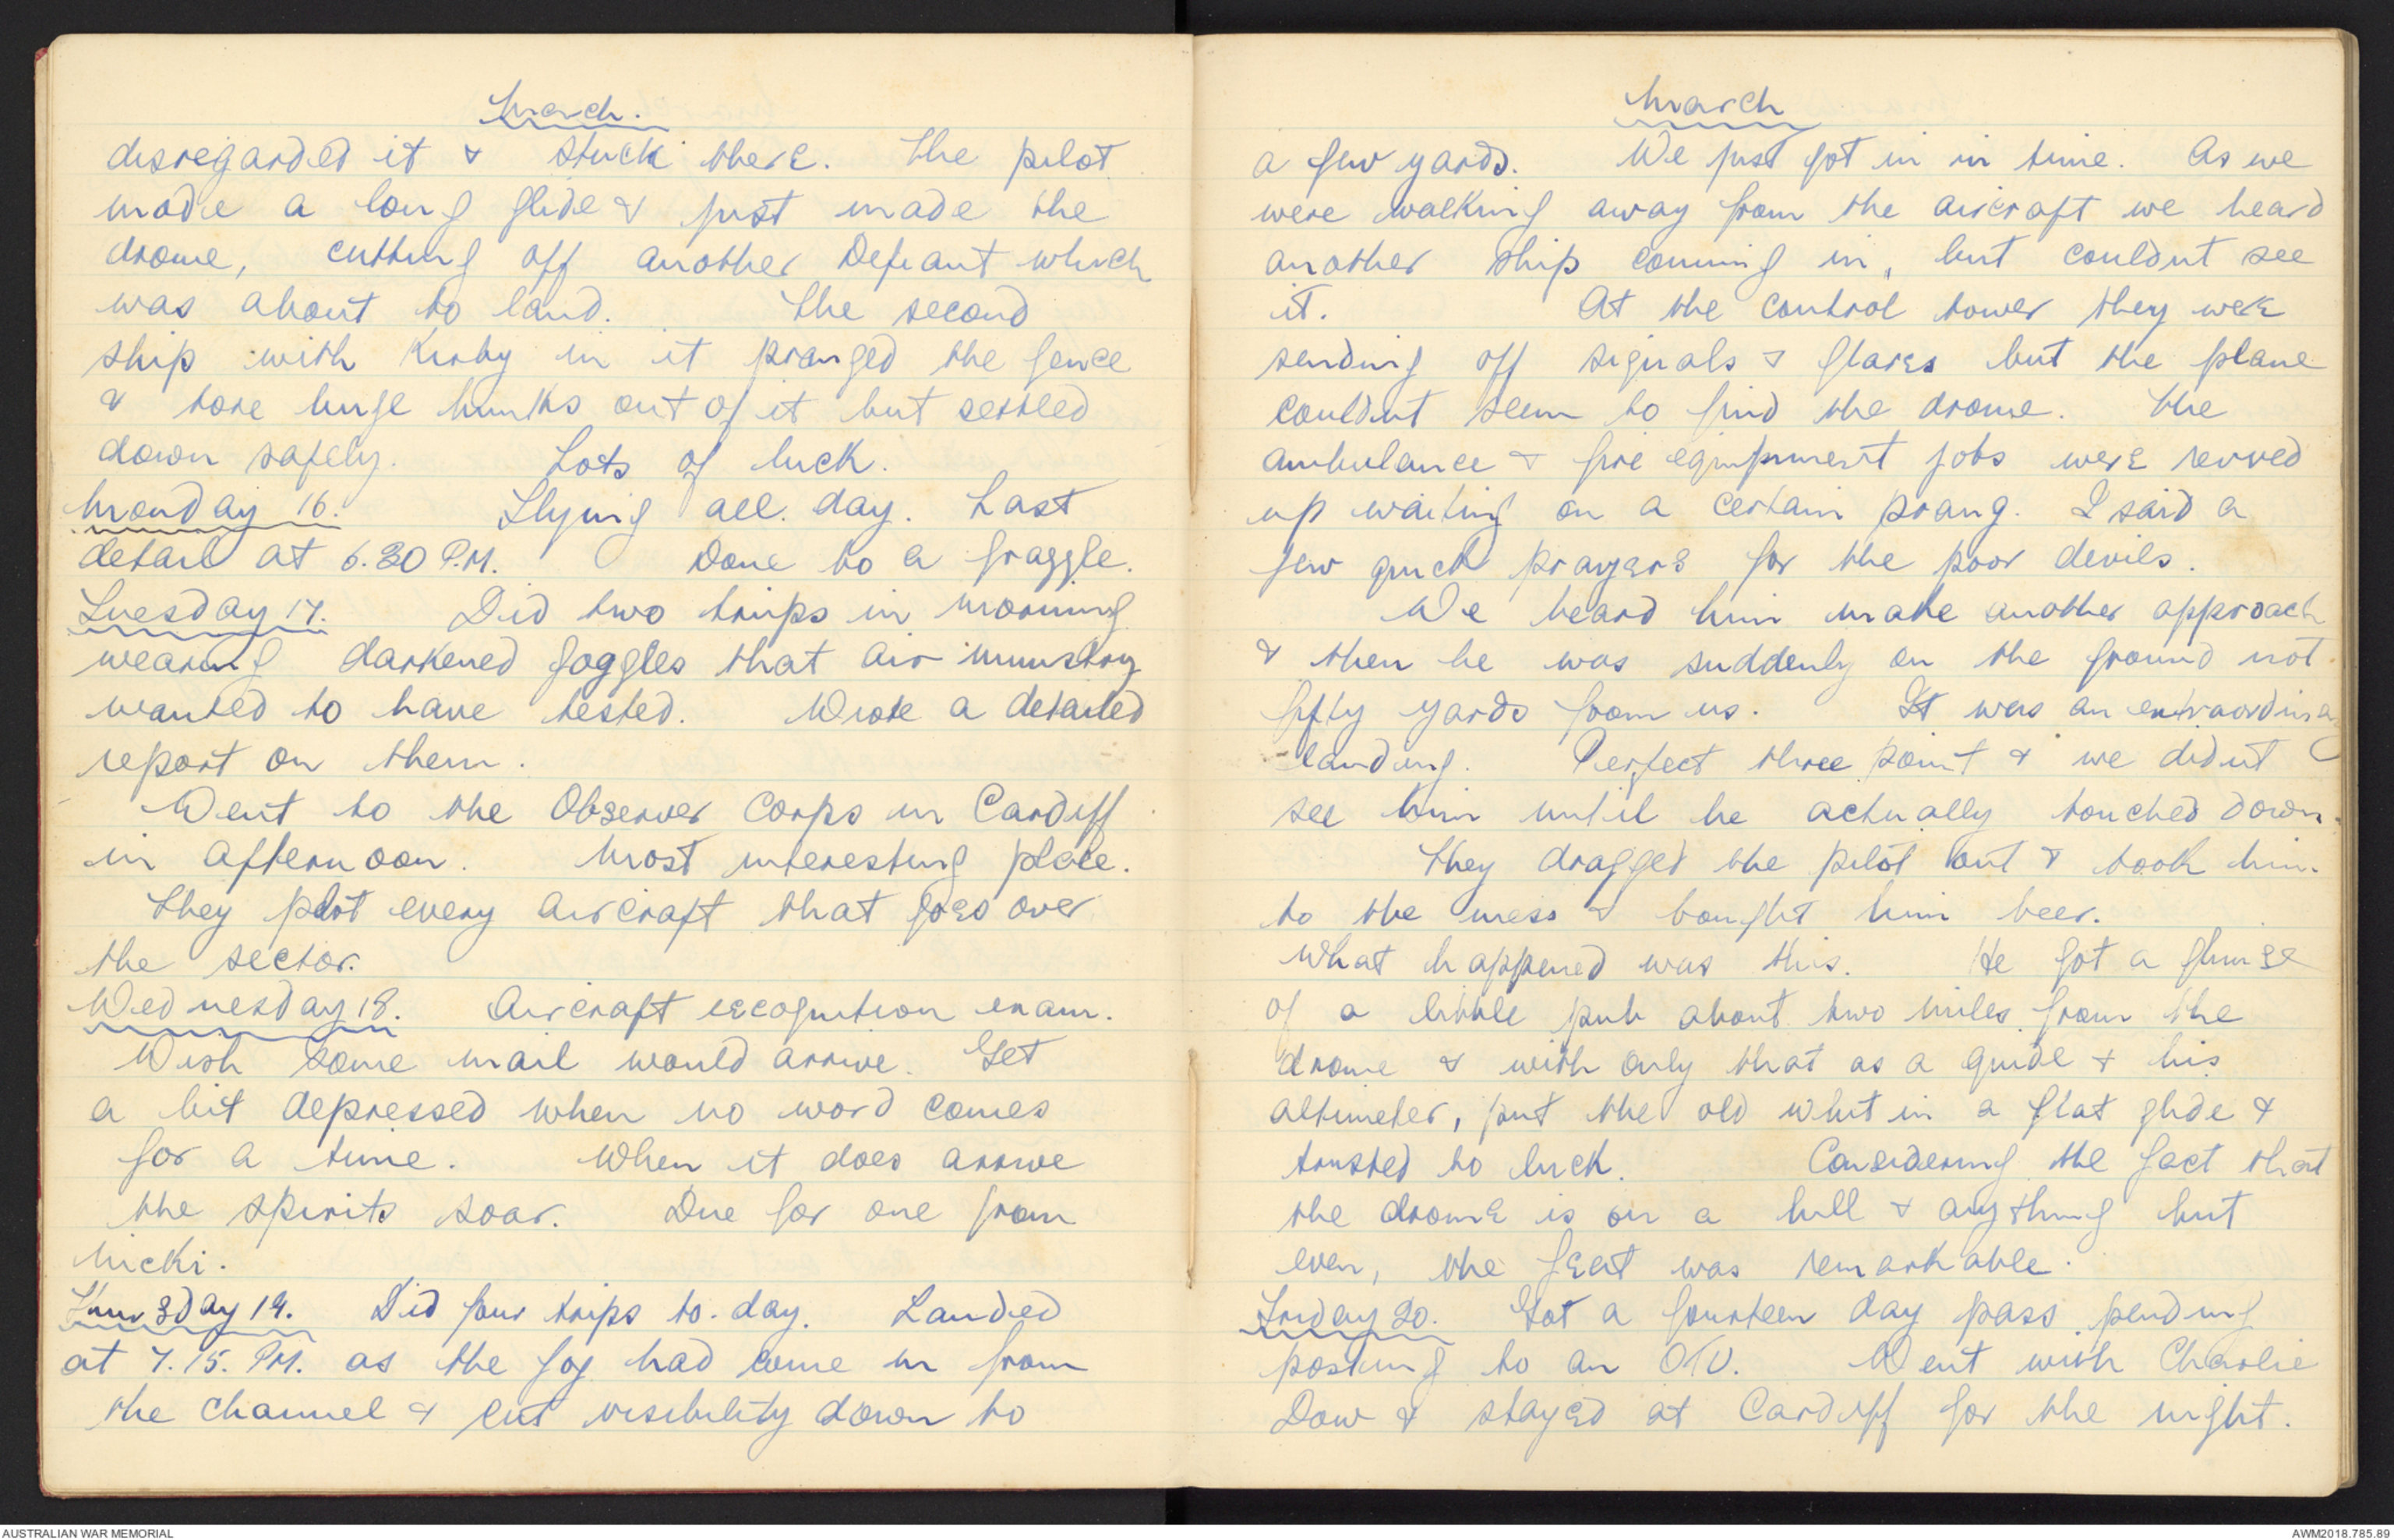 March.
disregarded it & stuck there. The pilot
made a long glide & just made the
drome, cutting off another Defiant which
was about to land. The second
ship with Kirby in it pranged the fence
& tore huge hunks out of it but settled
down safely. Lots of luck.
Monday 16. Flying all day. Last
detail at 6.30 P.M. Done to a fraggle.
Tuesday 17. Did two trips in morning
wearing darkened goggles that air ministry
wanted to have tested. Wrote a detailed
report on them.
Went to the Observer Corps in Cardiff
in afternoon. Most interesting place.
They plot every aircraft that goes over
the sector.
Wednesday 18. Aircraft recognition exam.
Wish some mail would arrive. Get
a bit depressed when no word comes
for a time. When it does arrive
the spirits soar. Due for one from
Micki.
Thursday 19. Did four trips to-day. Landed
at 7.15. PM. as the fog had come in from
the channel & cut visibility down to
March
a few yards. We just got in in time. As we
were walking away from the aircraft we heard
another ship coming in, but couldnt see
it. At the control tower they were
sending off signals & flares but the plane
couldnt seem to find the drome. The
ambulance & fire equipment jobs were revved
up waiting on a certain prang. I said a
few quick prayers for the poor devils.
We heard him make another approach
& then he was suddenly on the ground not
fifty yards from us. It was an extraordinary
landing. Perfect three point & we didnt
see him until he actually touched down.
They dragged the pilot out & took him
to the mess & bought him beer.
What happened was this. He got a glimse
of a little pub about two miles from the
drome & with only that as a guide & his
altimeter, put the old whit in a flat glide &
trusted to luck. Considering the fact that
the drome is on a hill & anything but
even, the feat was remarkable.
Friday 20. Got a fourteen day pass pending
posting to an OTU. Went with Charlie
Dow & stayed at Cardiff for the night.
AUSTRALIAN WAR MEMORIAL
AWM2018.785.89